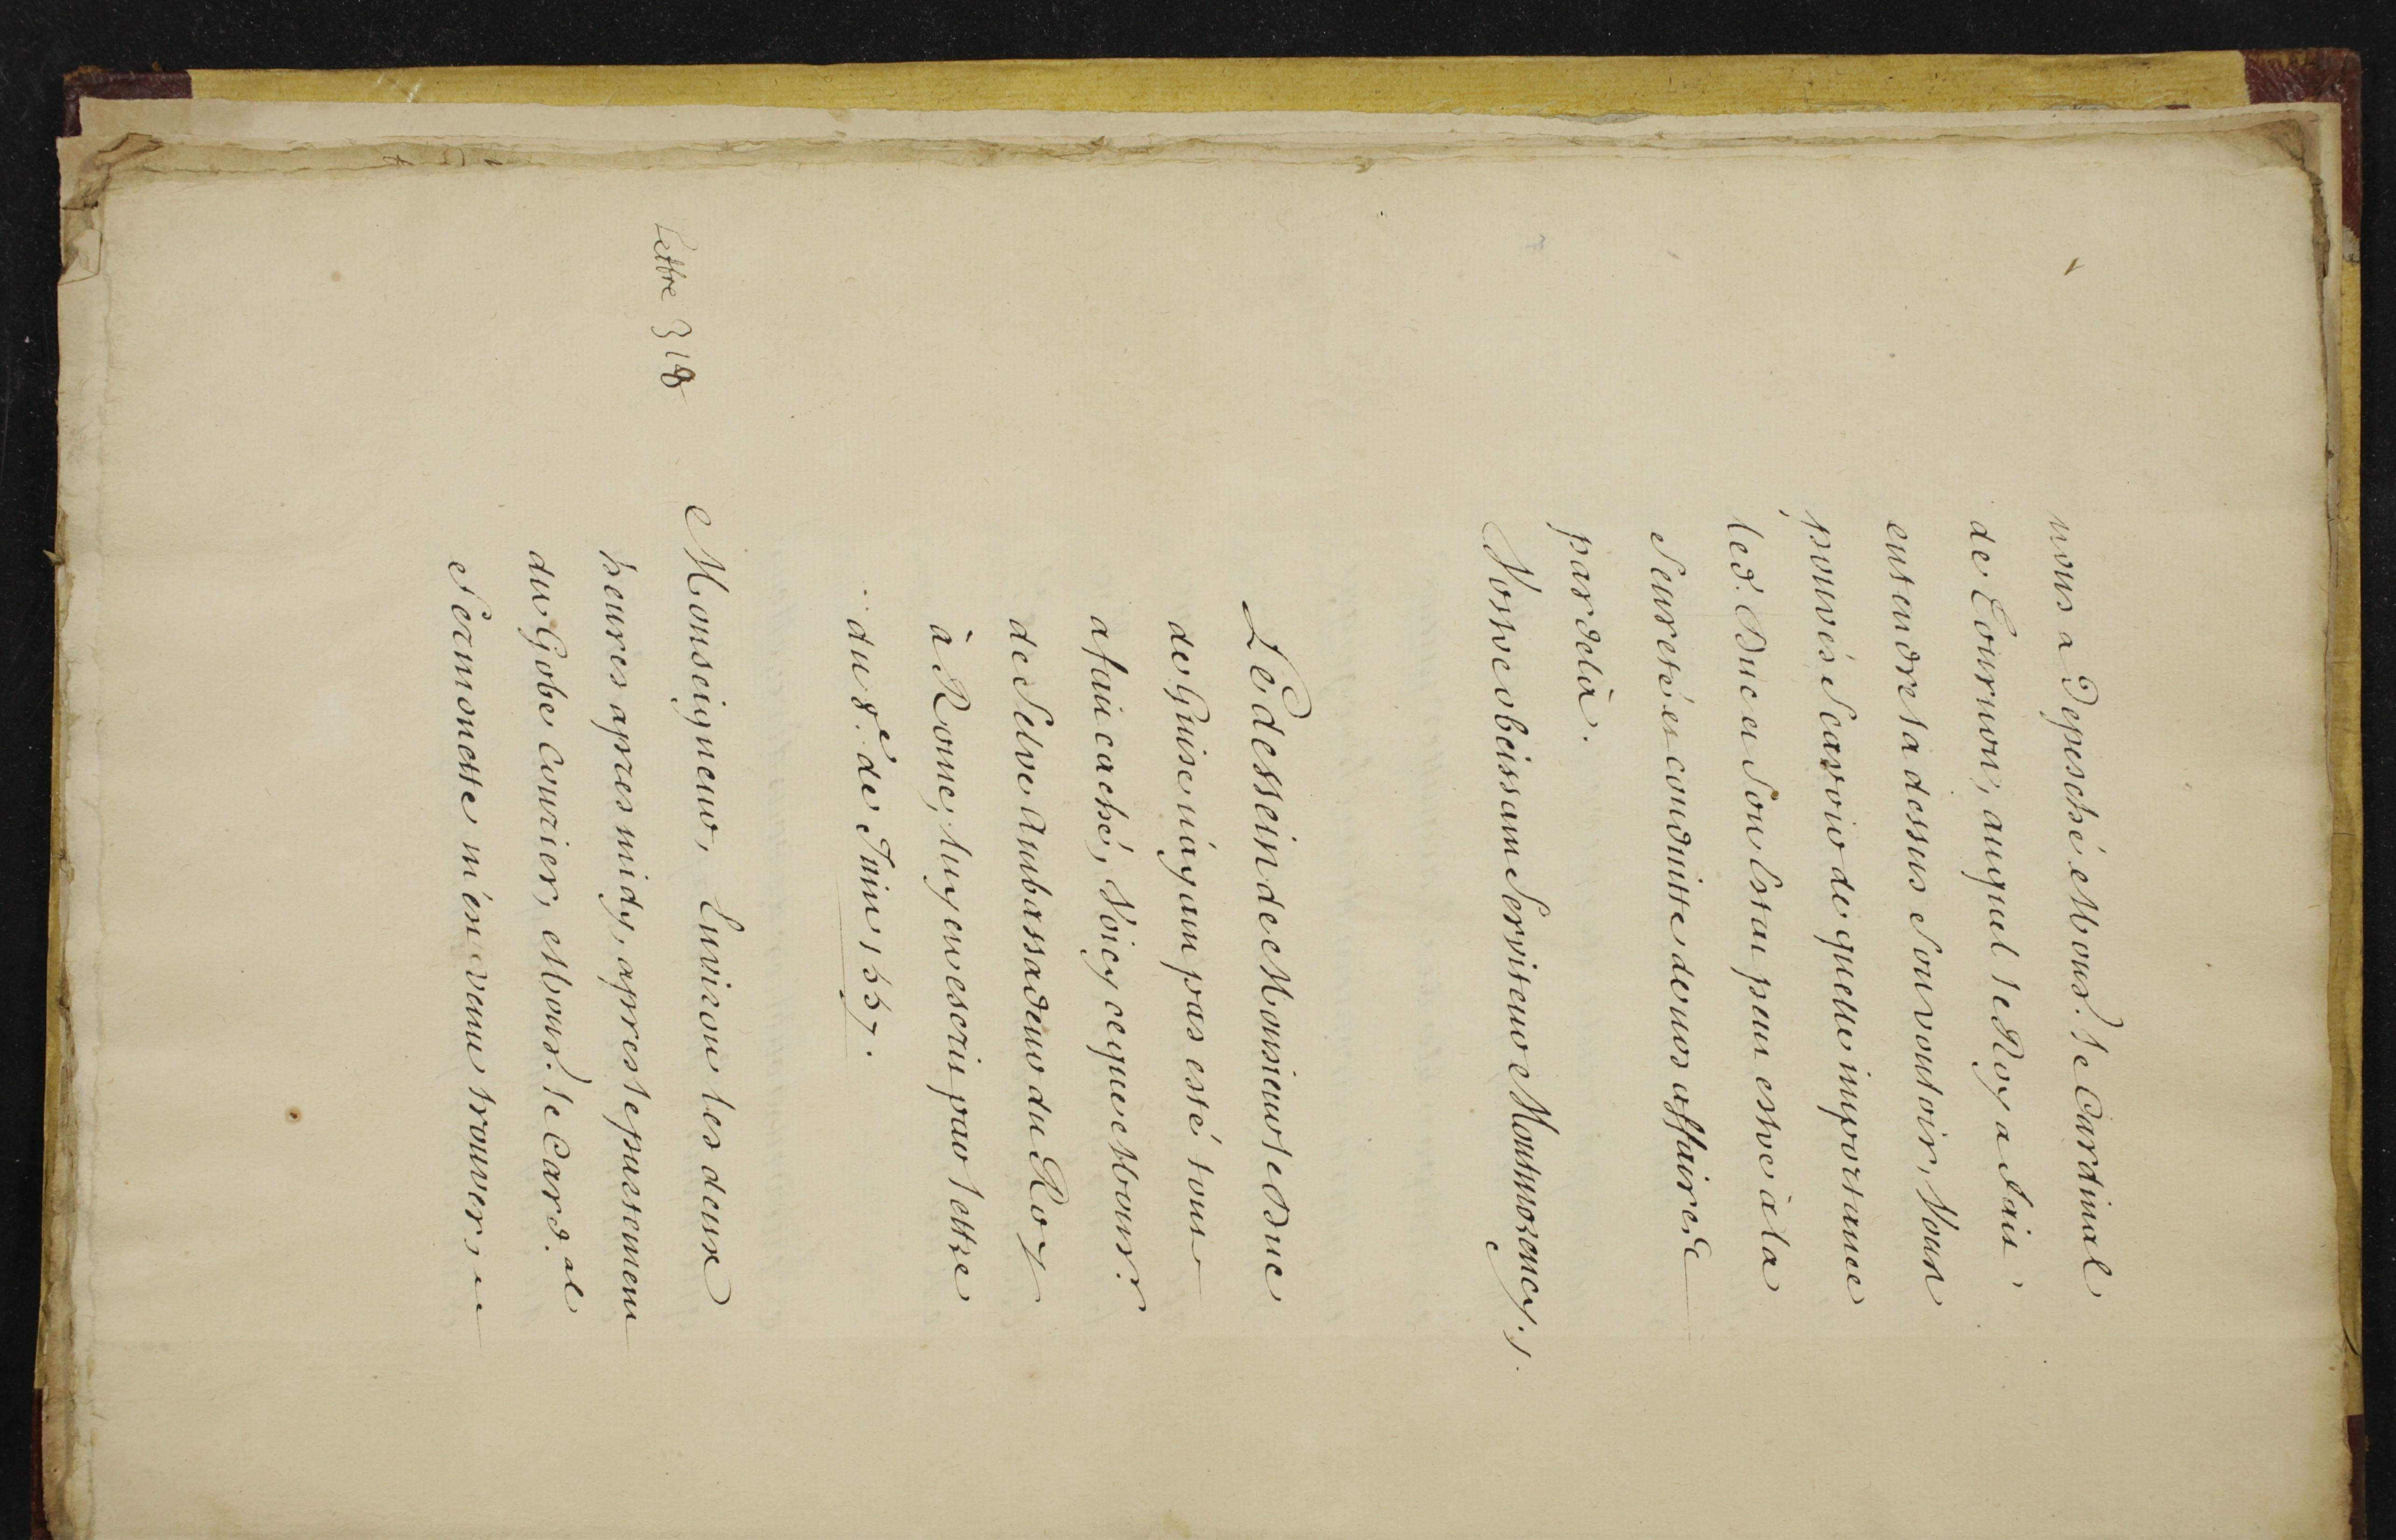 nous a Depesché Mons.r le Cardinal
de Tournon, auquel le Roy a fait
entendre la dessus son vouloir, Vous
pouvés scavoir de quelle importance
led. Duc en son Estat peut estre à la
seureté et conduitte de nos affaires
pardelà.
Vostre obeissant serviteur Montmorency./.
Le dessein de Monsieur le Duc
de Guise n'ayant pas esté tout
a fait caché, Voicy ce que Mons.r
de Selve Ambassadeur du Roy
à Rome, luy en escrit par lettre
du 8.e de Juin 1557.
Lettre 318
Monseigneur, Environ les deux
heures apres midy, apres le partement
du Gobe Courier, Mons.r le Card.al
Sermonette m'est venu trouver,